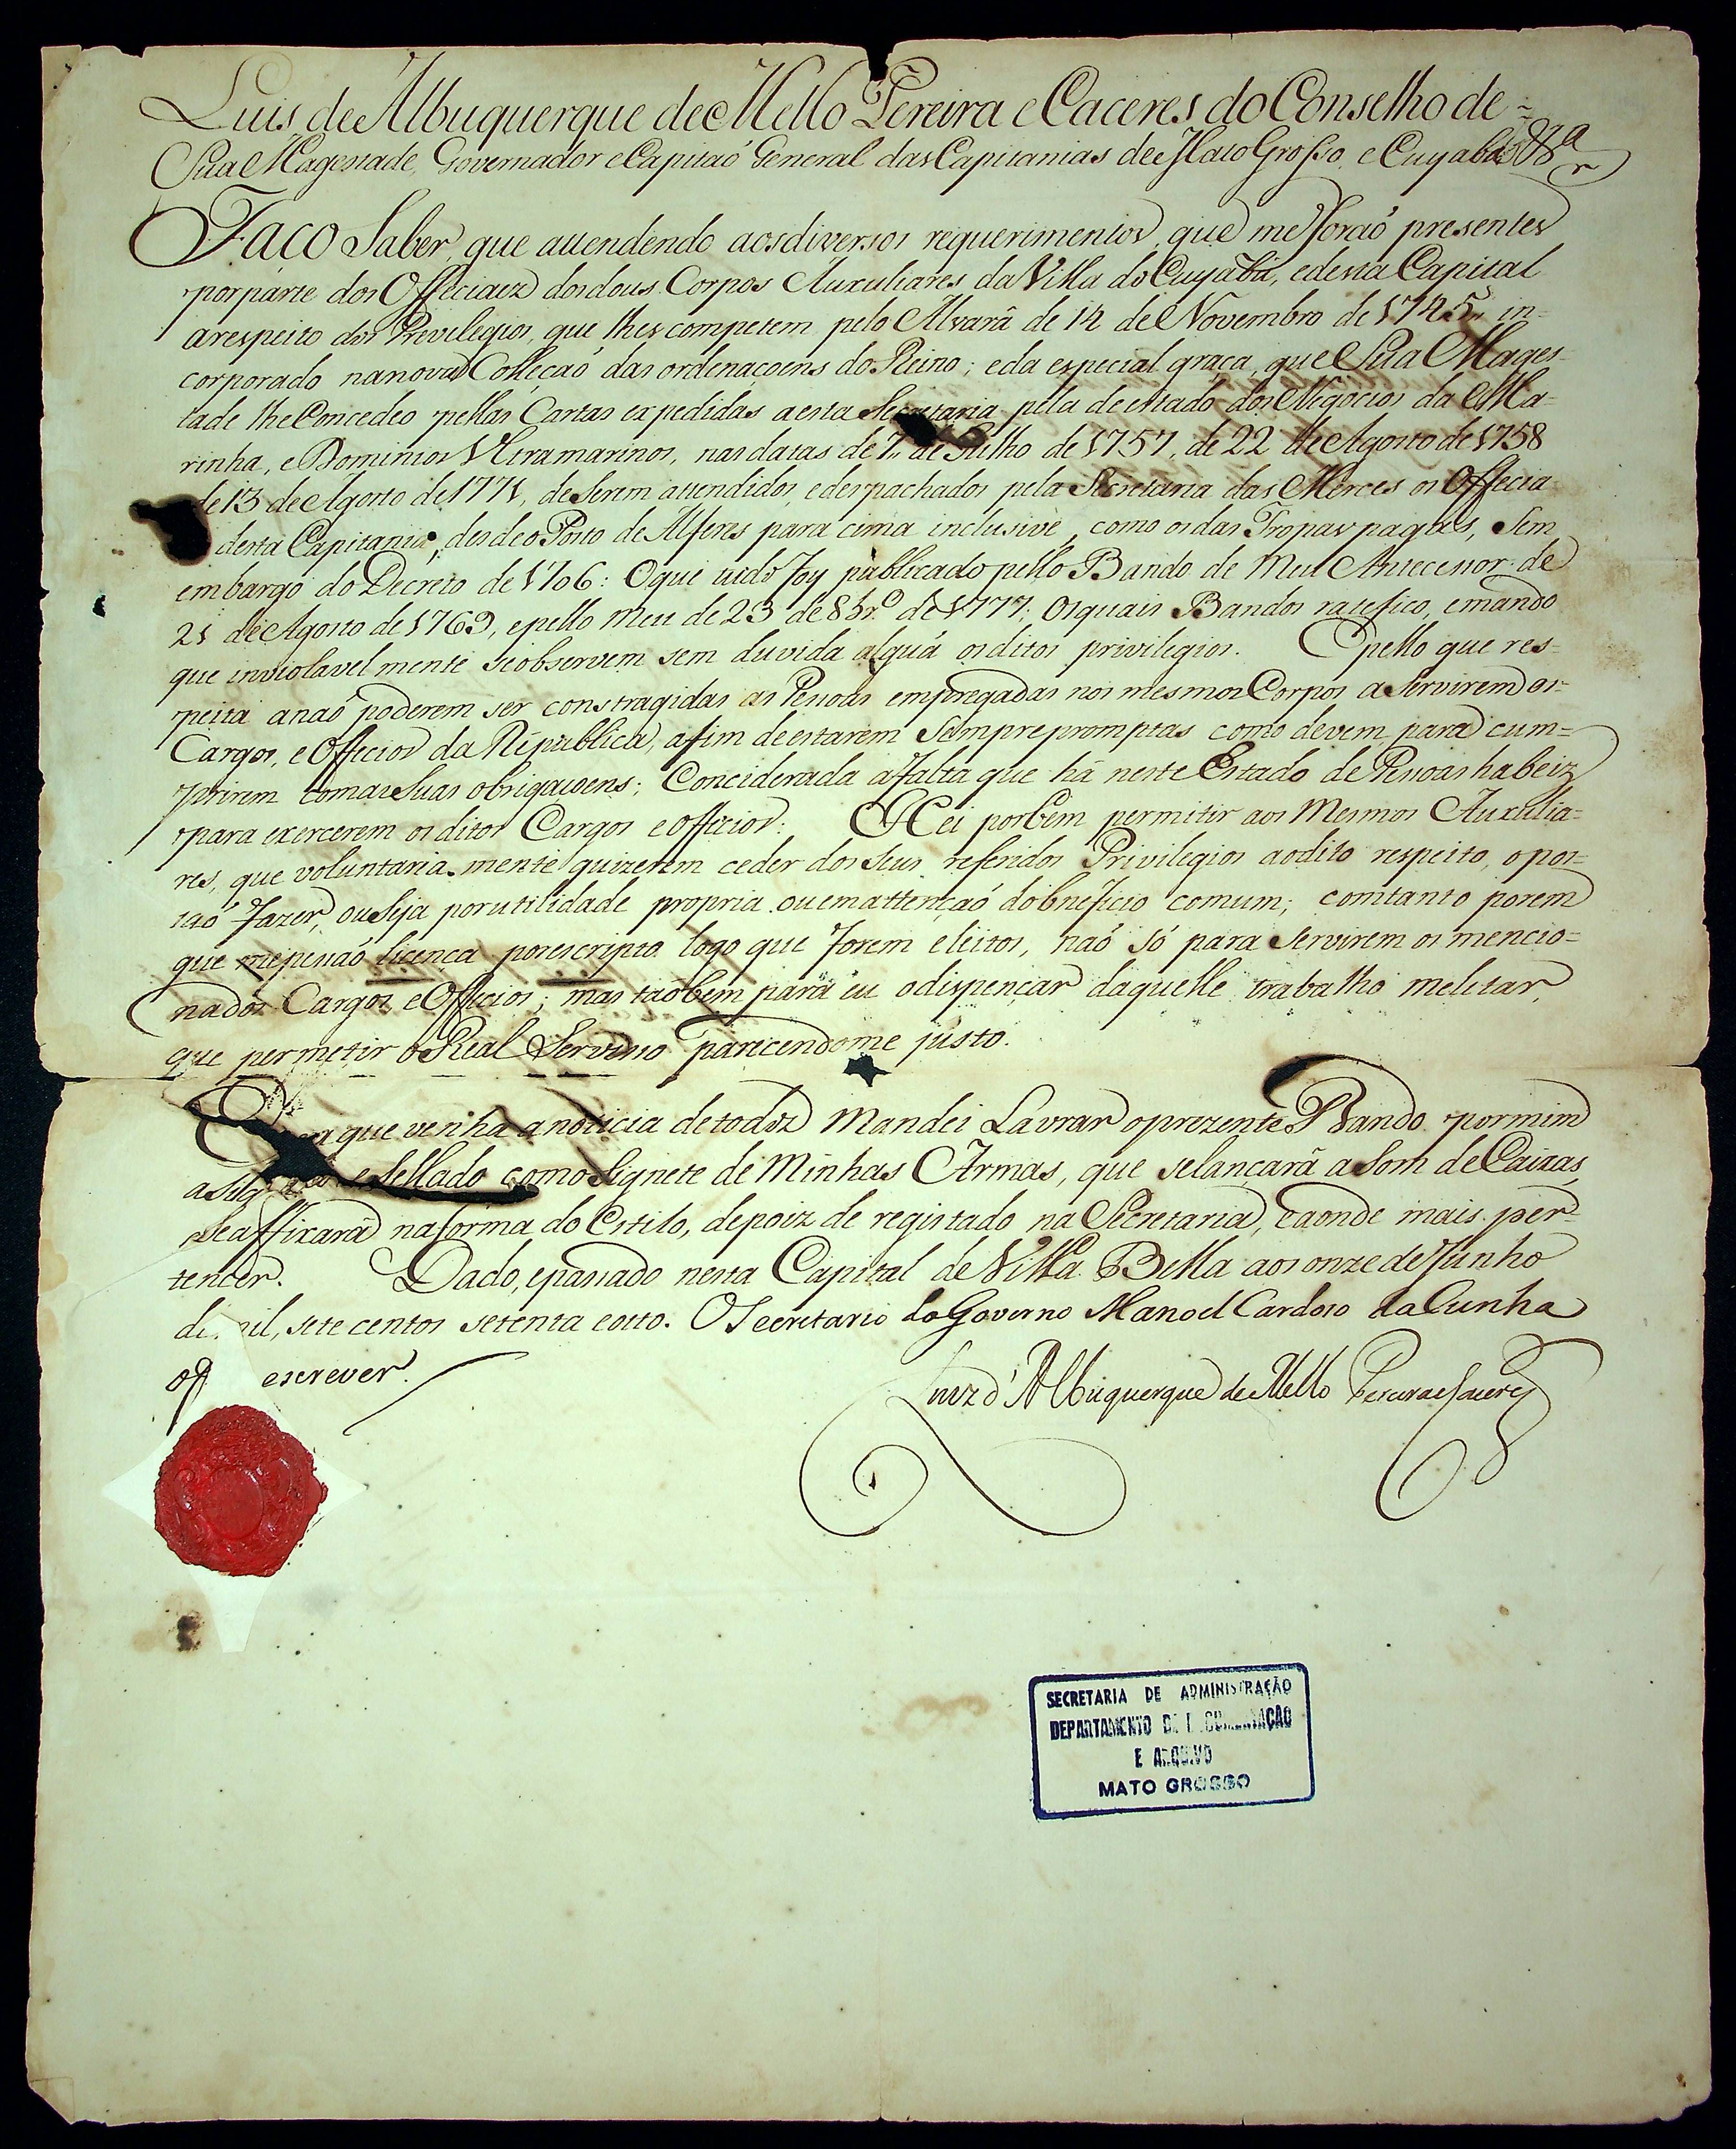 Luis de Albuquerque de Mello Pereira e Caceres do Conselho de =
Sua Magestade, Governador e Capitaõ General das Capitanias de Mato Grosso, e Cuyabá &.ª
Faço Saber, que attendendo aos diversos requerimentos, que me foraõ presentes
por parte dos Officiaez dos dous Corpos Auxuliares da Villa do Cuyabá, e desta Capital
a respeito dos Previlegios, que lhes competem pelo Alvarâ de 14 de Novembro de 1745,, in=
corporado na nova Collecaõ das ordenaçoens do Reino; e da especial graça, que Sua Mages=
tade lhe Concedeo pellas Cartas expedidas a esta Secretaria pela de estado dos Negocios da Ma=
rinha, e Dominios Ultramarinos, nas datas de 7,, de Julho de 1757, de 22 de Agosto de 1758
de 13 de Agosto de 1771, de Serem attendidos, e despachados pela Secretaria das Merces os Offecia=
desta Capitania, desde o Posto de Alferes para cima inclusivè, como os das Tropas pagas, Sem
embargo do Decreto de 1706: O que tudo foy publicado pello Bando de Meu Antecessor de
21 de Agosto de 1769, e pello Meu de 23 de 8br.º de 1777; Os quais Bandos ratefico, e mando
que inviolavelmente se observem sem duvida alguã os ditos privilegios. E pello que res=
peita a naõ poderem ser constragidas as Pessoas empregadas nos mesmos Corpos a Servirem os=
Cargos, e Offecios da Républica, afim de estarem Sempre promptas como devem para cum=
prirem com as Suas obrigaçoens; Conciderada a falta que há neste Estado de Pessoas habeiz
para exercerem os ditos Cargos e officios: Hei por bem permitir aos Mesmos Auxulia=
res, que voluntaria mente quizerem ceder dos Seus referidos Privilegios ao dito respeito, o pos=
saõ fazer, ou Seja por utilidade propria ou em attençaõ do bnéficio comum; com tanto porem
que me pessaõ licença por escripto logo que forem eleitos, naõ só para Servirem os mencio=
nados Cargos, e Officios; mas taõ bem para eu o dispençar daquelle trabalho meletar,
que permetir o Real Serviso parecendo me justo.
que venha a noticia de todoz Mandei Lavrar o prezente Bando por mim
e Sellado com o Signete de Minhas Armas, que se lançarâ a Som de Caixas,
Se affixarâ na forma do Estilo, depoiz de registado na Secretaria, e aonde mais per=
tencer. Dado, e passado nesta Capital de Villa Bella aos onze de Junho
de mil, sete centos setenta e oito. O Secretario do Governo Manoel Cardoso da Cunha
escrever.
Luiz d'Albuquerque de Mello Pereira e Caceres
SECRETARIA DE ADMINISTRAÇÃO
DEPARTAMENTO DE DOCUMENTAÇÃO
E ARQUIVO
MATO GROSSO